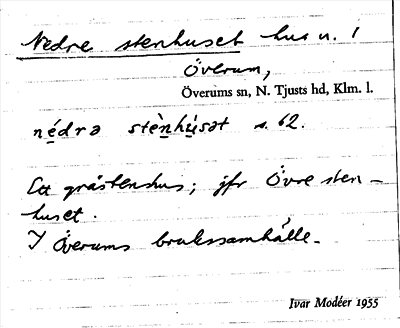 Nedre stenhuset hus n. 1
Överum,
Överums sn, N. Tjusts hd, Klm. l.
nédrə stènhùsət s. 62.
Ett gråstenshus; jfr Övre sten-
huset.
I Överums brukssamhälle.
Ivar Modéer 1955